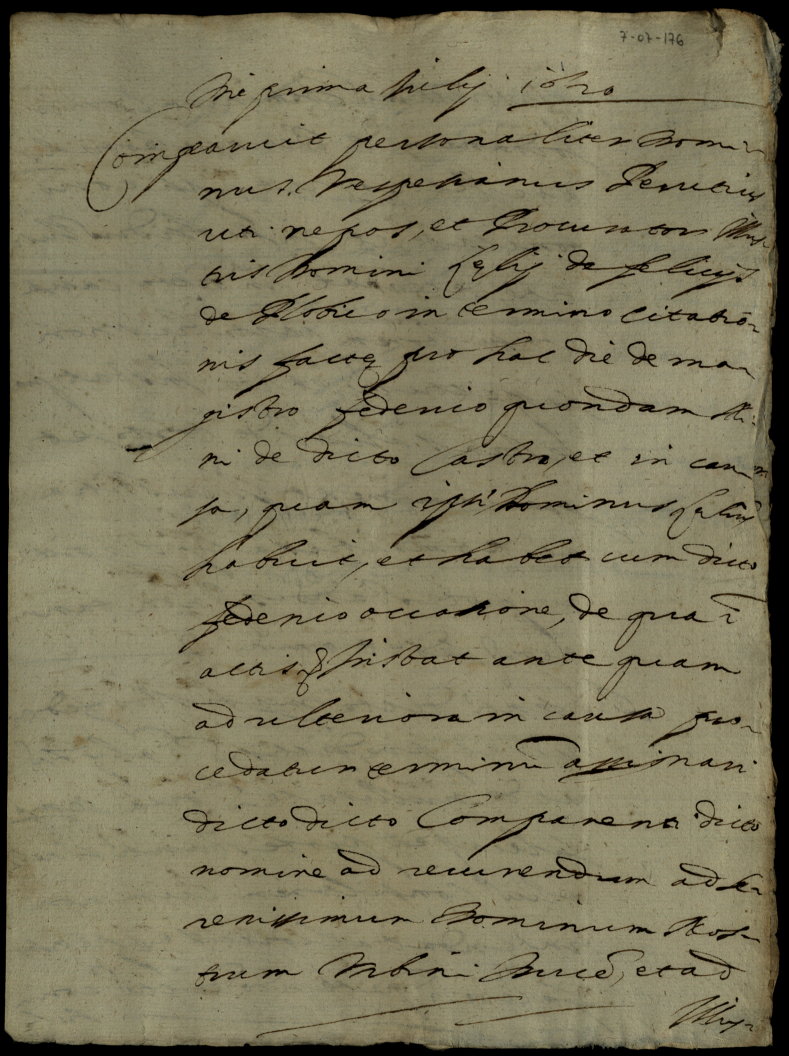 7-07-176
Die prima Julij 1620
Comparuit personaliter Domi-
nus Vespesianus Perutius
uti nepos, et Procurator Illus-
tris Domini Lelij de felicijs
de in termino citatio-
nis factę pro hac die de ma-
gistro federico quondam
ni de dicto Castro, et in cau-
sa, quam ipse Dominus Lelius
habuit, et habet cum dicto
federico occasione, de qua ī
actis & Instat ante quam
ad ulteriora in causa pro-
cedatur terminū assignari
dicto dicto Comparenti dicto
nomine ad recurrendum ad Se-
renissimum Dominum Nos-
trum Urbini Ducē, et ad
Illus-